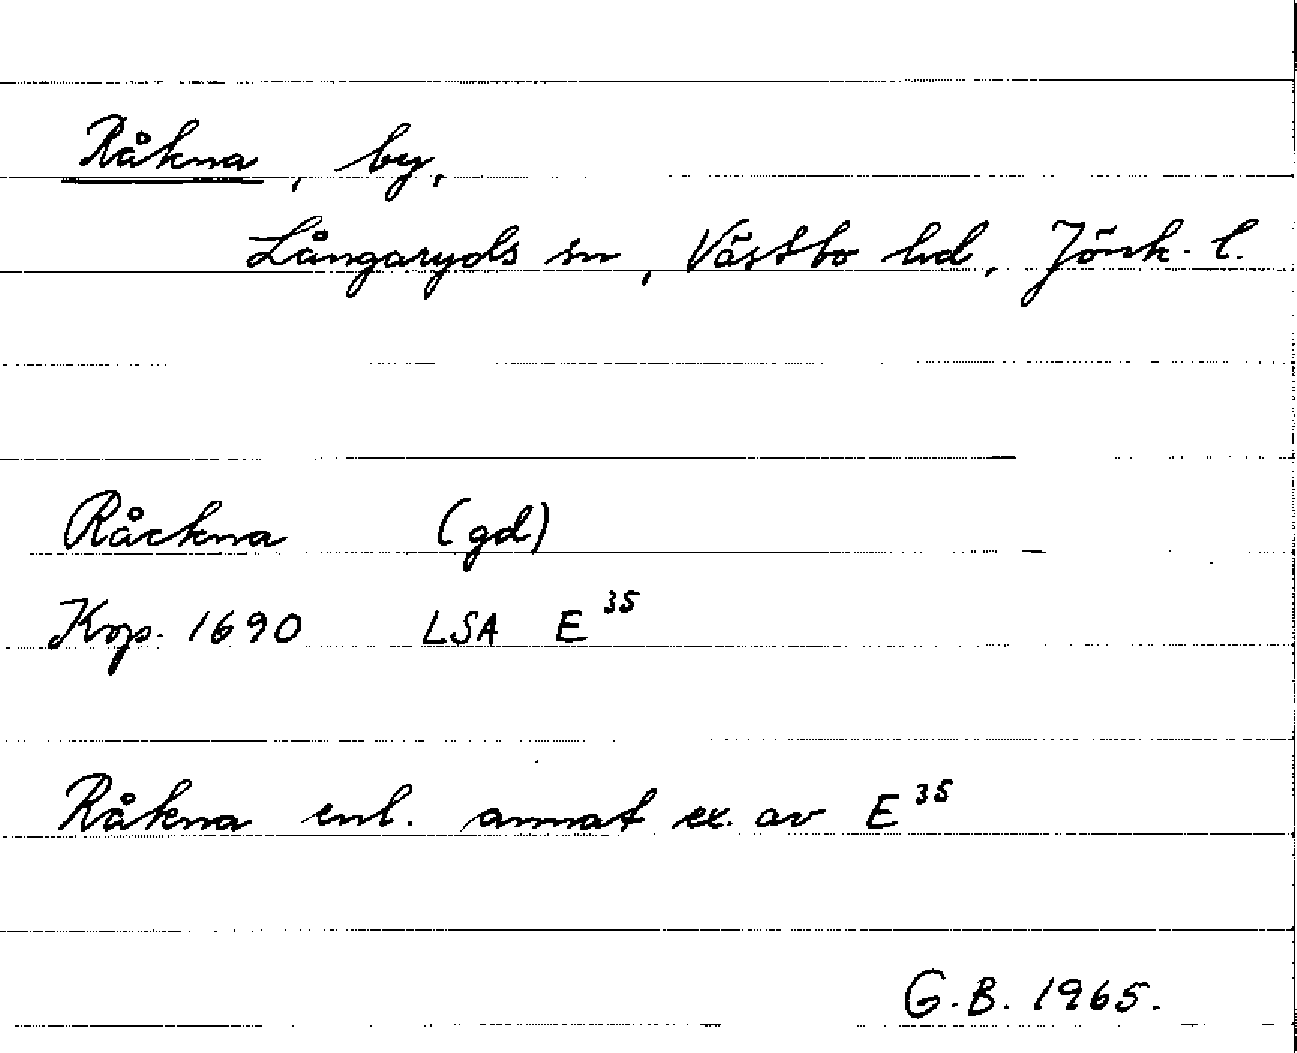 Råkna, by,
Långaryds sn, Västbo hd, Jönk. l.
Råckna (gd)
Kop. 1690 LSA E 35
Råkna enl. annat ex. av E 35
G.B. 1965.